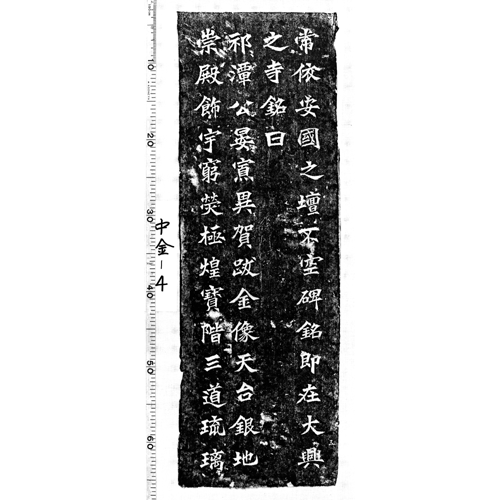 常依安國之壇不空碑銘即在大興
之寺銘曰
祁潭公晏異賀跋金像天台銀地
崇殿飾宇窮熒極煌寶階三道琉璃
中金-4
10
20
30
40
50
60